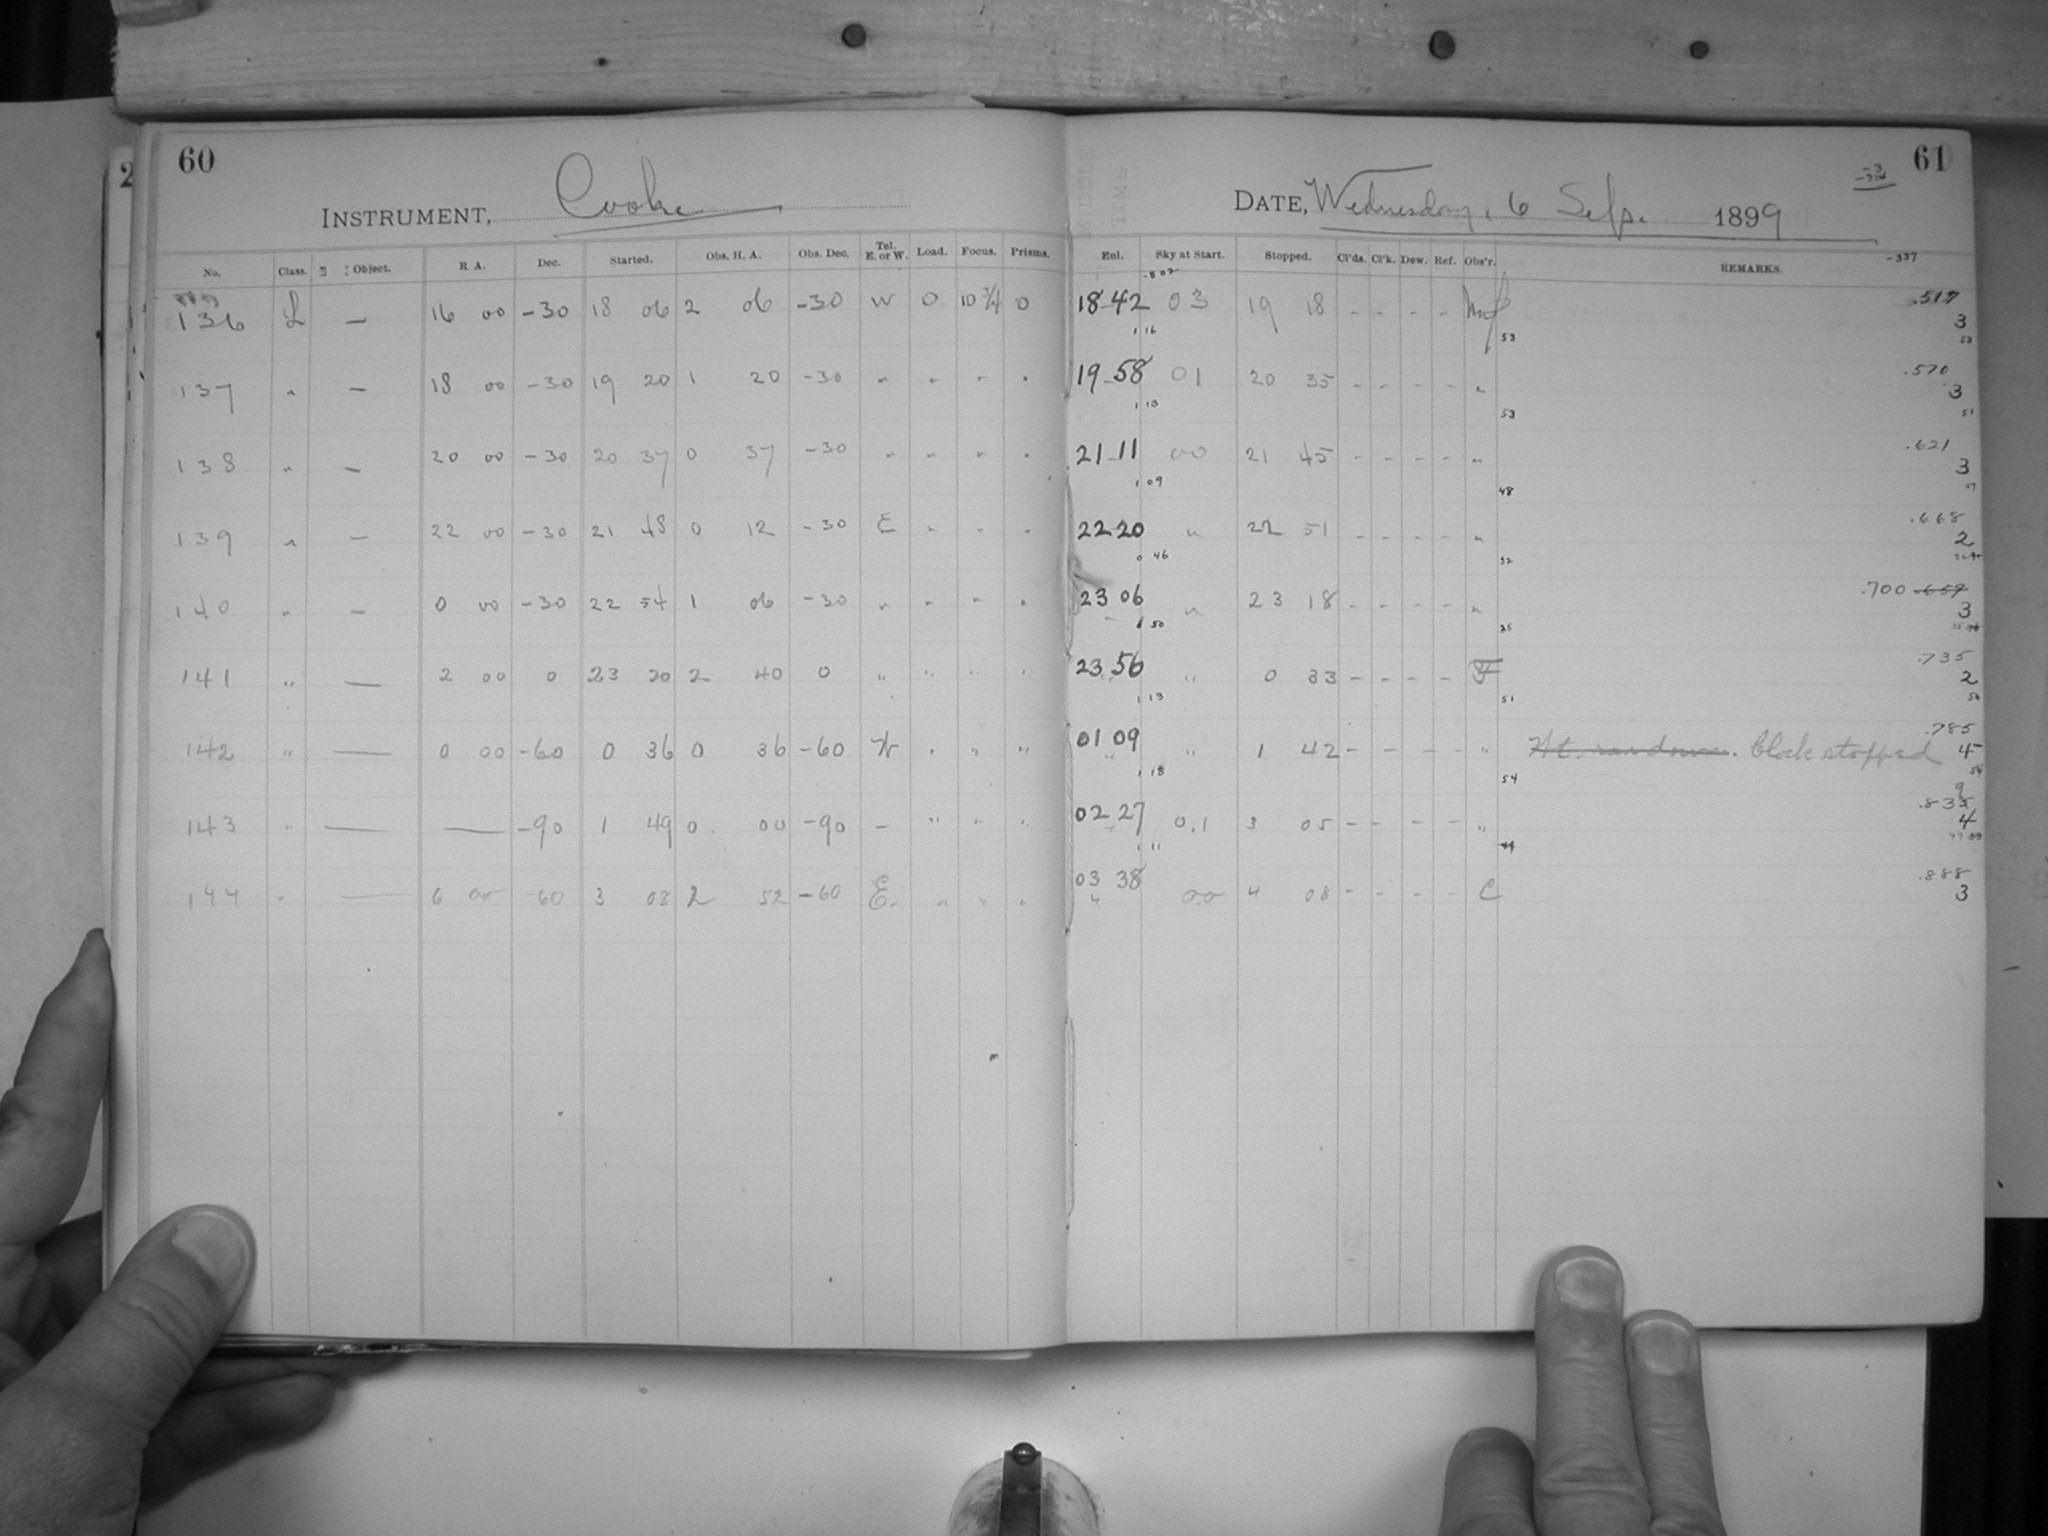 60
INSTRUMENT, Cooke
No. Class. Object. R A. Dec. Started. Obs. H. A. Obs. Dec. Tel. E. or W. Load. Focus. Prisms.
136 L — 16 00 -30 18 06 2 06 -30 W 0 10 3/4 0
137 " — 18 00 -30 19 20 1 20 -30 " " " "
138 " — 20 00 -30 20 37 0 37 -30 " " " "
139 " — 22 00 -30 21 48 0 12 -30 E " " "
140 " — 0 00 -30 22 54 1 06 -30 " " " "
141 " — 2 00 0 23 20 2 40 0 " " " "
142 " — 0 00 -60 0 36 0 36 -60 W " " "
143 " — — -90 1 49 0 00 -90 - " " "
144 " — 6 00 -60 3 08 2 52 -60 E. " " "
61
MIDDLE TIME
DATE, Wednesday, 6 Sep. 1899
Eul. Sky at Start. Stopped. Cl'ds. Cl'k. Dew. Ref. Obs'r. REMARKS. -337
18 42 03 19 18 - - - - .517 3
1 16 53
19 58 01 20 35 - - - - " .570 3
1 13 53 51
21 11 00 21 45 - - - - " .621 3
1 09 48
22 20 " 22 51 - - - - " .668 2
0 46 32
23 06 " 23 18 - - - - " .700 .659 3
50 35
23 56 " 0 33 - - - - F .735 2
1 13 51 50
01 09 " 1 42 - - - - " Clock stopped .785 4
1 18 54 54
02 27 0.1 3 05 - - - - " 4
1 11 49
03 38 00 4 08 - - - - C .888 3